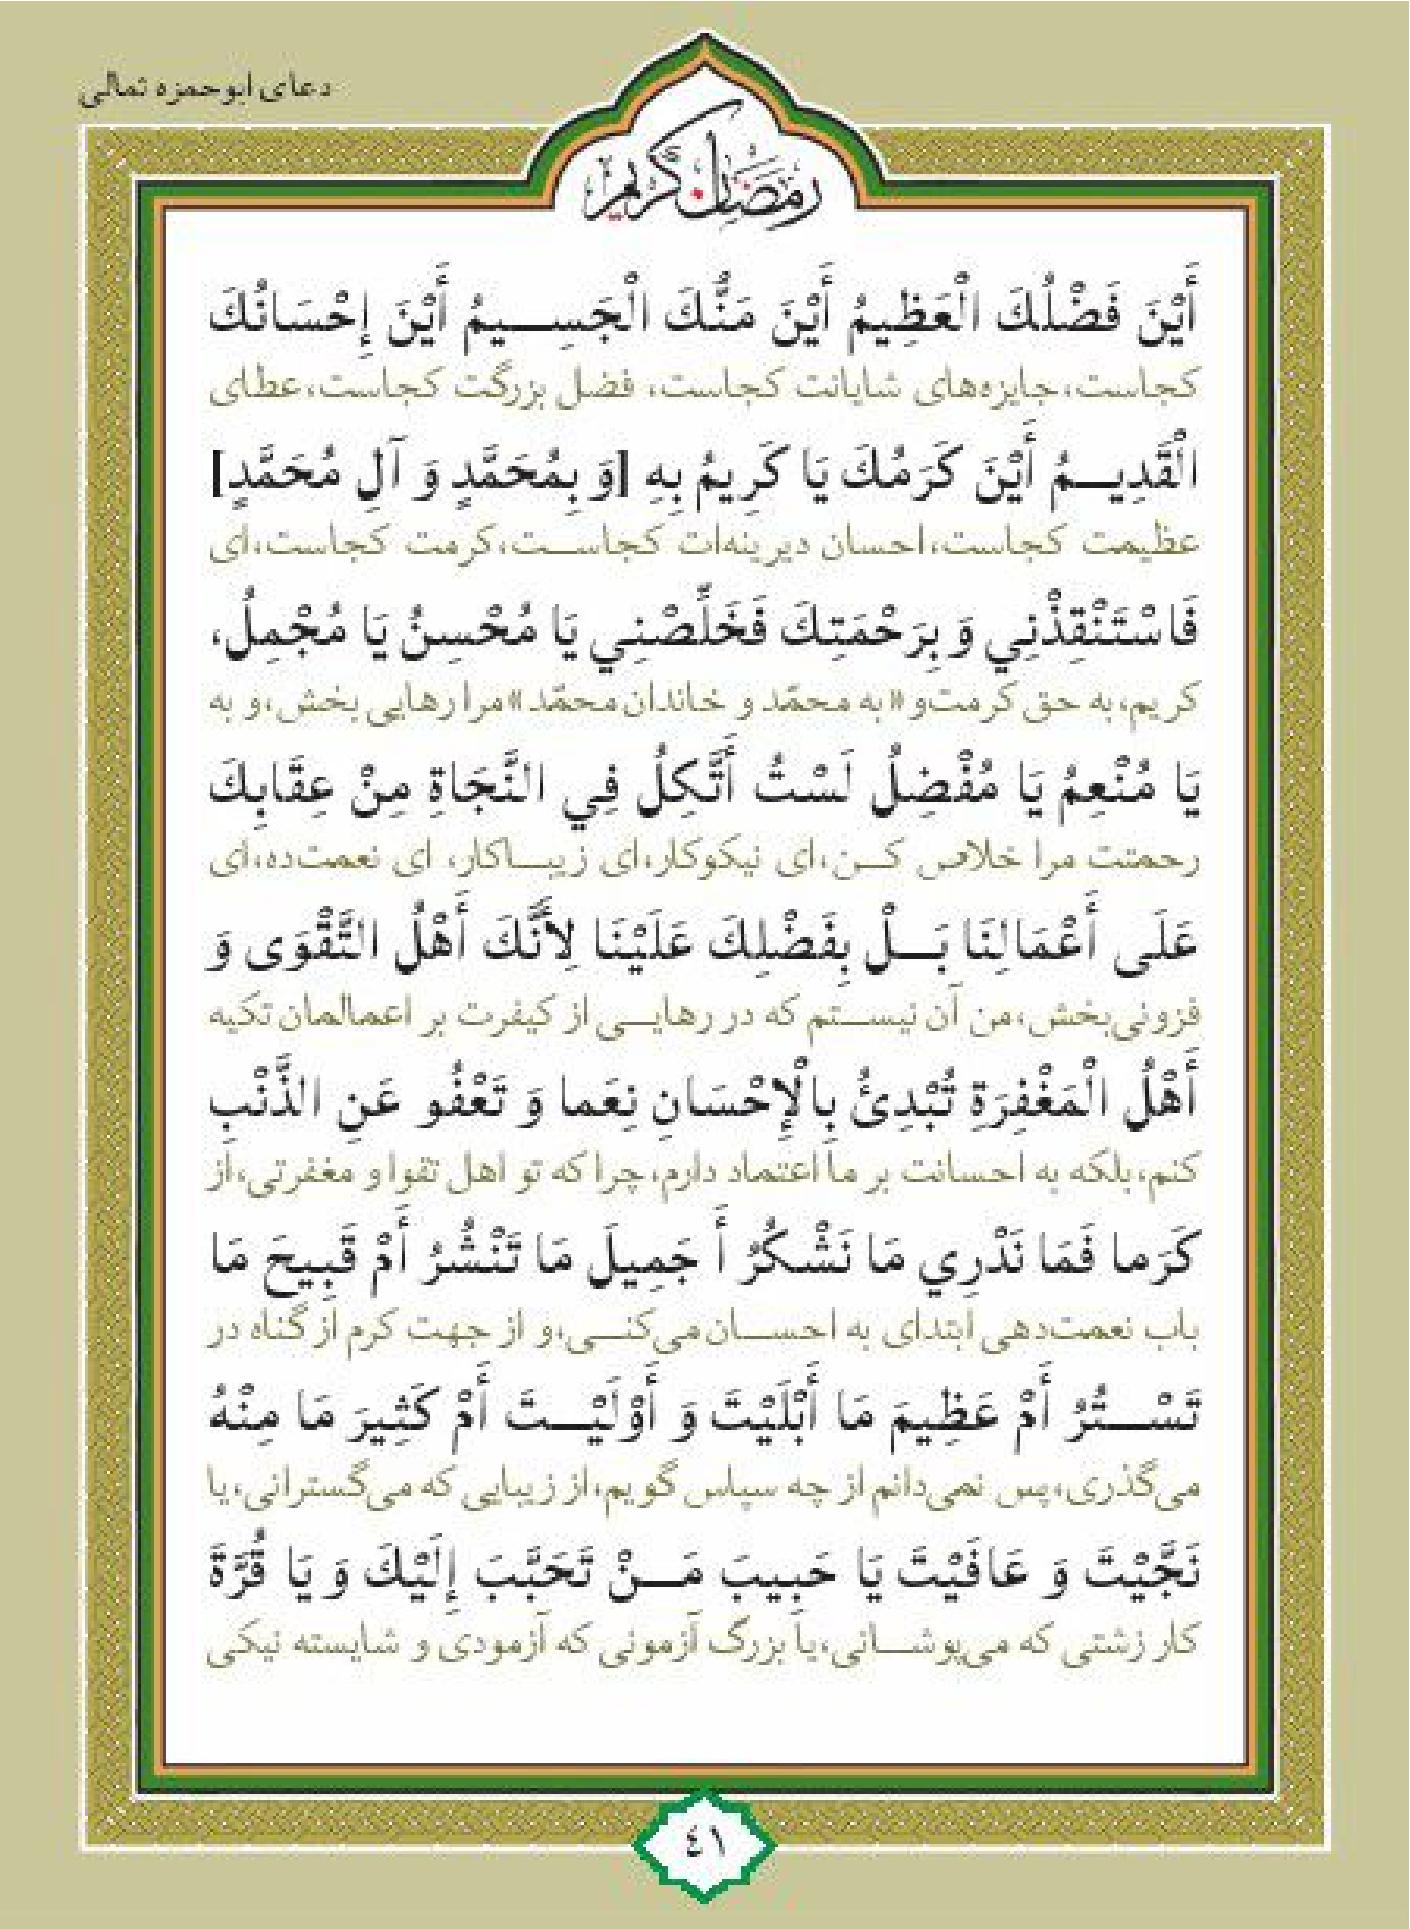 دعای ابوحمزه ثمالی
رمضان کریم
أَيْنَ فَضْلُكَ الْعَظِيمُ أَيْنَ مَنُّكَ الْجَسِيمُ أَيْنَ إِحْسَانُكَ
کجاست، جایزه‌های شایانت کجاست، فضل بزرگت کجاست، عطای
الْقَدِيمُ أَيْنَ كَرَمُكَ يَا كَرِيمُ بِهِ [وَ بِمُحَمَّدٍ وَ آلِ مُحَمَّدٍ]
عظیمت کجاست، احسان دیرینه‌ات کجاست، کرمت کجاست، ای
فَاسْتَنْقِذْنِي وَ بِرَحْمَتِكَ فَخَلِّصْنِي يَا مُحْسِنُ يَا مُجْمِلُ،
کریم، به حق کرمت و «به محمّد و خاندان محمّد» مرا رهایی بخش، و به
يَا مُنْعِمُ يَا مُفْضِلُ لَسْتُ أَتَّكِلُ فِي النَّجَاةِ مِنْ عِقَابِكَ
رحمتت مرا خلاص کن، ای نیکوکار، ای زیباکار، ای نعمت‌ده، ای
عَلَى أَعْمَالِنَا بَلْ بِفَضْلِكَ عَلَيْنَا لِأَنَّكَ أَهْلُ التَّقْوَى وَ
فزونی‌بخش، من آن نیستم که در رهایی از کیفرت بر اعمالمان تکیه
أَهْلُ الْمَغْفِرَةِ تُبْدِئُ بِالْإِحْسَانِ نِعَما وَ تَعْفُو عَنِ الذَّنْبِ
کنم، بلکه به احسانت بر ما اعتماد دارم، چرا که تو اهل تقوا و مغفرتی، از
كَرَما فَمَا نَدْرِي مَا نَشْكُرُ أَ جَمِيلَ مَا تَنْشُرُ أَمْ قَبِيحَ مَا
باب نعمت‌دهی ابتدای به احسان می‌کنی، و از جهت کرم از گناه در
تَسْتُرُ أَمْ عَظِيمَ مَا أَبْلَيْتَ وَ أَوْلَيْتَ أَمْ كَثِيرَ مَا مِنْهُ
می‌گذری، پس نمی‌دانم از چه سپاس گویم، از زیبایی که می‌گسترانی، یا
نَجَّيْتَ وَ عَافَيْتَ يَا حَبِيبَ مَنْ تَحَبَّبَ إِلَيْكَ وَ يَا قُرَّةَ
کار زشتی که می‌پوشانی، یا بزرگ آزمونی که آزمودی و شایسته نیکی
٤١